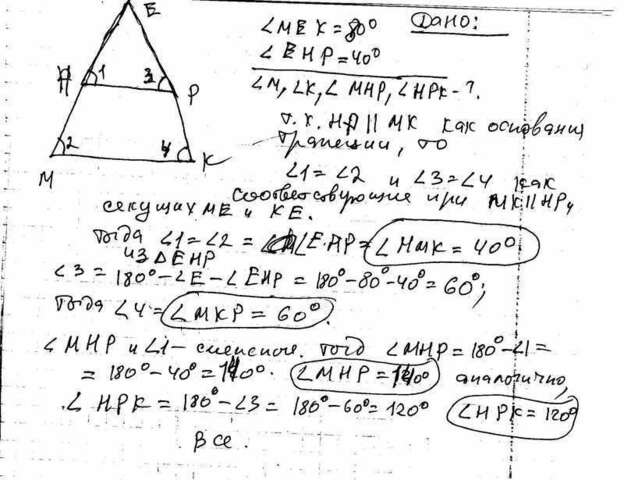 E
H 1 3 P
2 4
M K
Дано:
∠MEK = 80°
∠EHP = 40°
∠M, ∠K, ∠MHP, ∠HPK - ?.
т.к. HP || MK как основания
трапеции, то
∠1 = ∠2 и ∠3 = ∠4 как
соответствующие при MK || HP и
секущих ME и KE.
Тогда ∠1 = ∠2 = ∠EHP = ∠HMK = 40°
из ΔEHP
∠3 = 180° - ∠E - ∠EHP = 180° - 80° - 40° = 60°;
Тогда ∠4 = ∠MKP = 60°.
∠MHP и ∠1 - смежные. Тогд ∠MHP = 180° - ∠1 =
= 180° - 40° = 140°. ∠MHP = 140° аналогично,
∠HPK = 180° - ∠3 = 180° - 60° = 120° ∠HPK = 120°
Все.